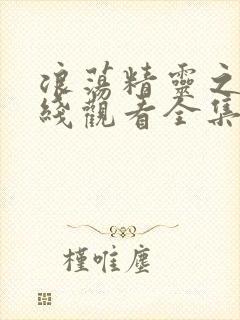 浪蕩精靈之
綫觀看全集
槿唯塵